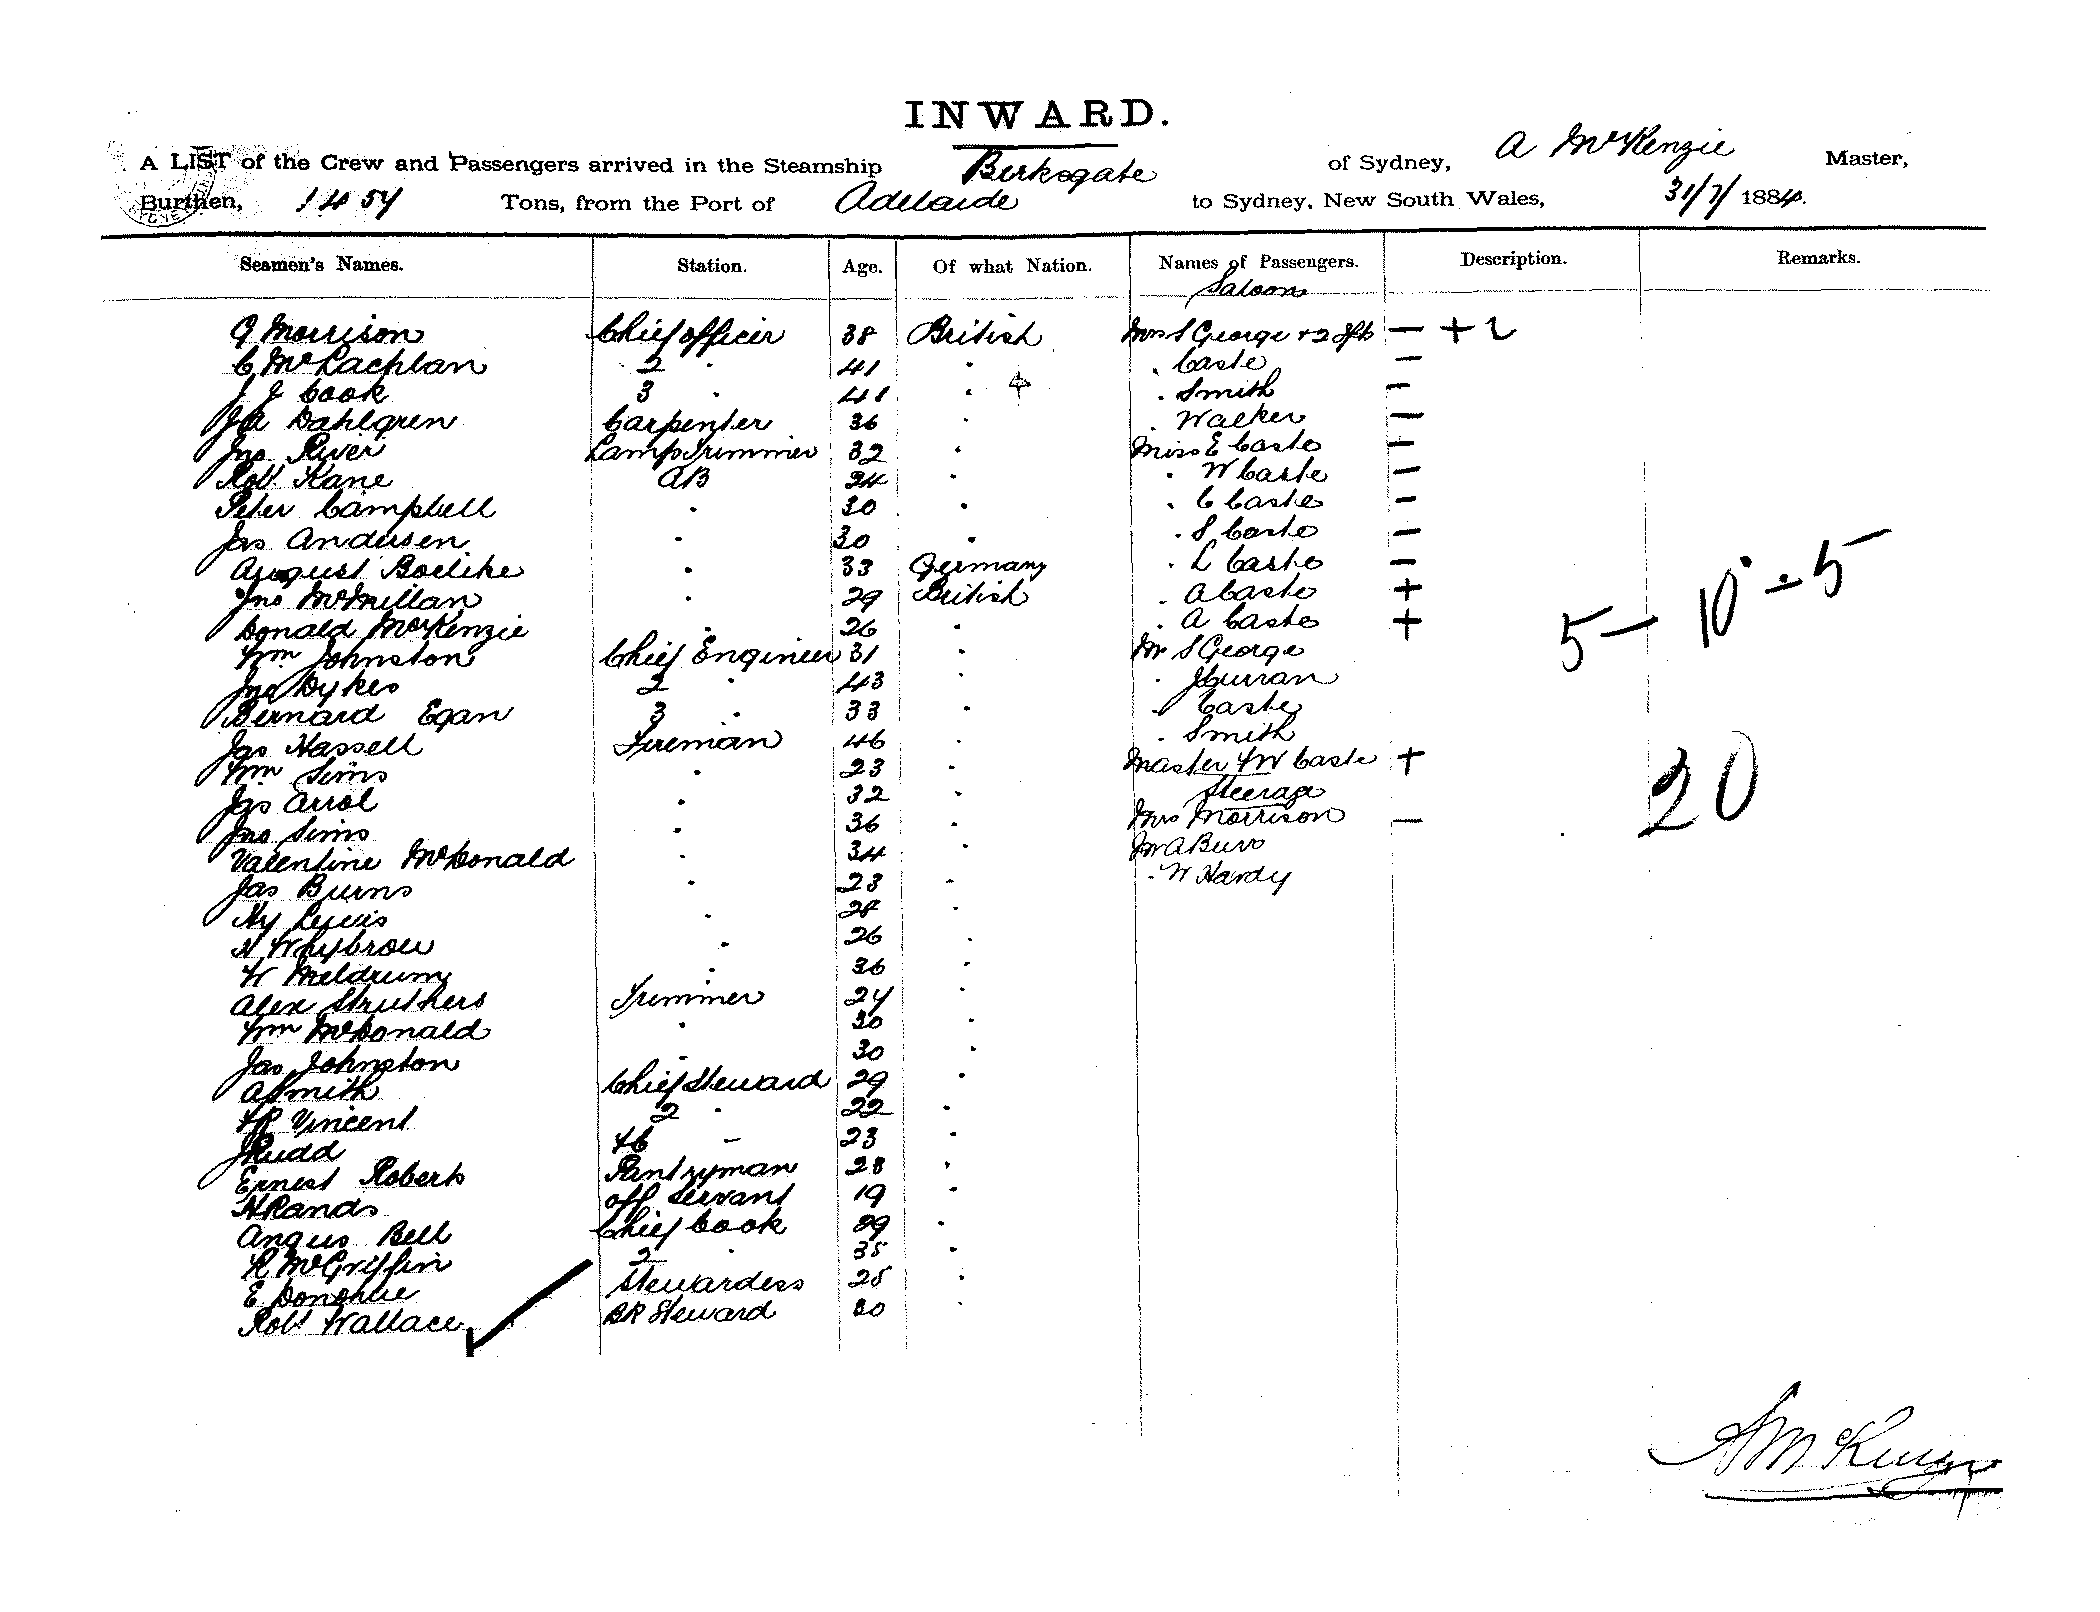 INWARD.
A LIST of the Crew and Passengers arrived in the Steamship Birksgate of Sydney, A McKenzie Master,
Burthen, 1454 Tons, from the Port of Adelaide to Sydney, New South Wales, 31/7/1884.
Seamen's Names. Station. Age. Of what Nation. Names of Passengers. Description. Remarks.
Saloon
G Morrison Chief officer 38 British Mrs S George + 2 — + 2
C McLachlan 2 " 41 " " Caste —
J J Cook 3 " 41 " " Smith —
Dahlgren Carpenter 36 " " Walker —
Jno River Lamp Trimmer 32 " Miss E Caste —
Robt Kane AB 24 " " W Caste —
Peter Campbell " 30 " " C Caste —
Jas Andersen " 30 " " S Caste —
August Boelike " 33 Germany " L Caste —
Jno McMillan " 29 British " A Caste +
Donald McKenzie " 26 " " A Caste +
5 — 10 ÷ 5
Wm Johnston Chief Engineer 31 " Mr S George
Jno Dykes 2 " 43 " " J Curran
Bernard Egan 3 " 33 " " Caste
Jas Hassell Fireman 46 " " Smith
Wm Sims " 23 " Master F W Caste +
Jas Arrol " 32 " Steerage
20
Jno Sims " 36 " Mrs Morrison —
Valentine McDonald " 34 " Mr A
Jas Burns " 23 " " W Hardy
Hy Lewis " 28 "
H Whybrow " 26 "
W Meldrum " 36 "
Alex Struthers Trimmer 24 "
Wm McDonald " 30 "
Jas Johnston " 30 "
A Smith Chief Steward 29 "
Vincent 2 " 22 "
J Rudd 23 "
Ernest Roberts Pantryman 28 "
H Rands off Servant 19 "
Angus Bell Chief Cook 29 "
R McGriffin 2 " 35 "
E Donohue Stewardess 25 "
Robt Wallace BR Steward 20 "
A McKenzie